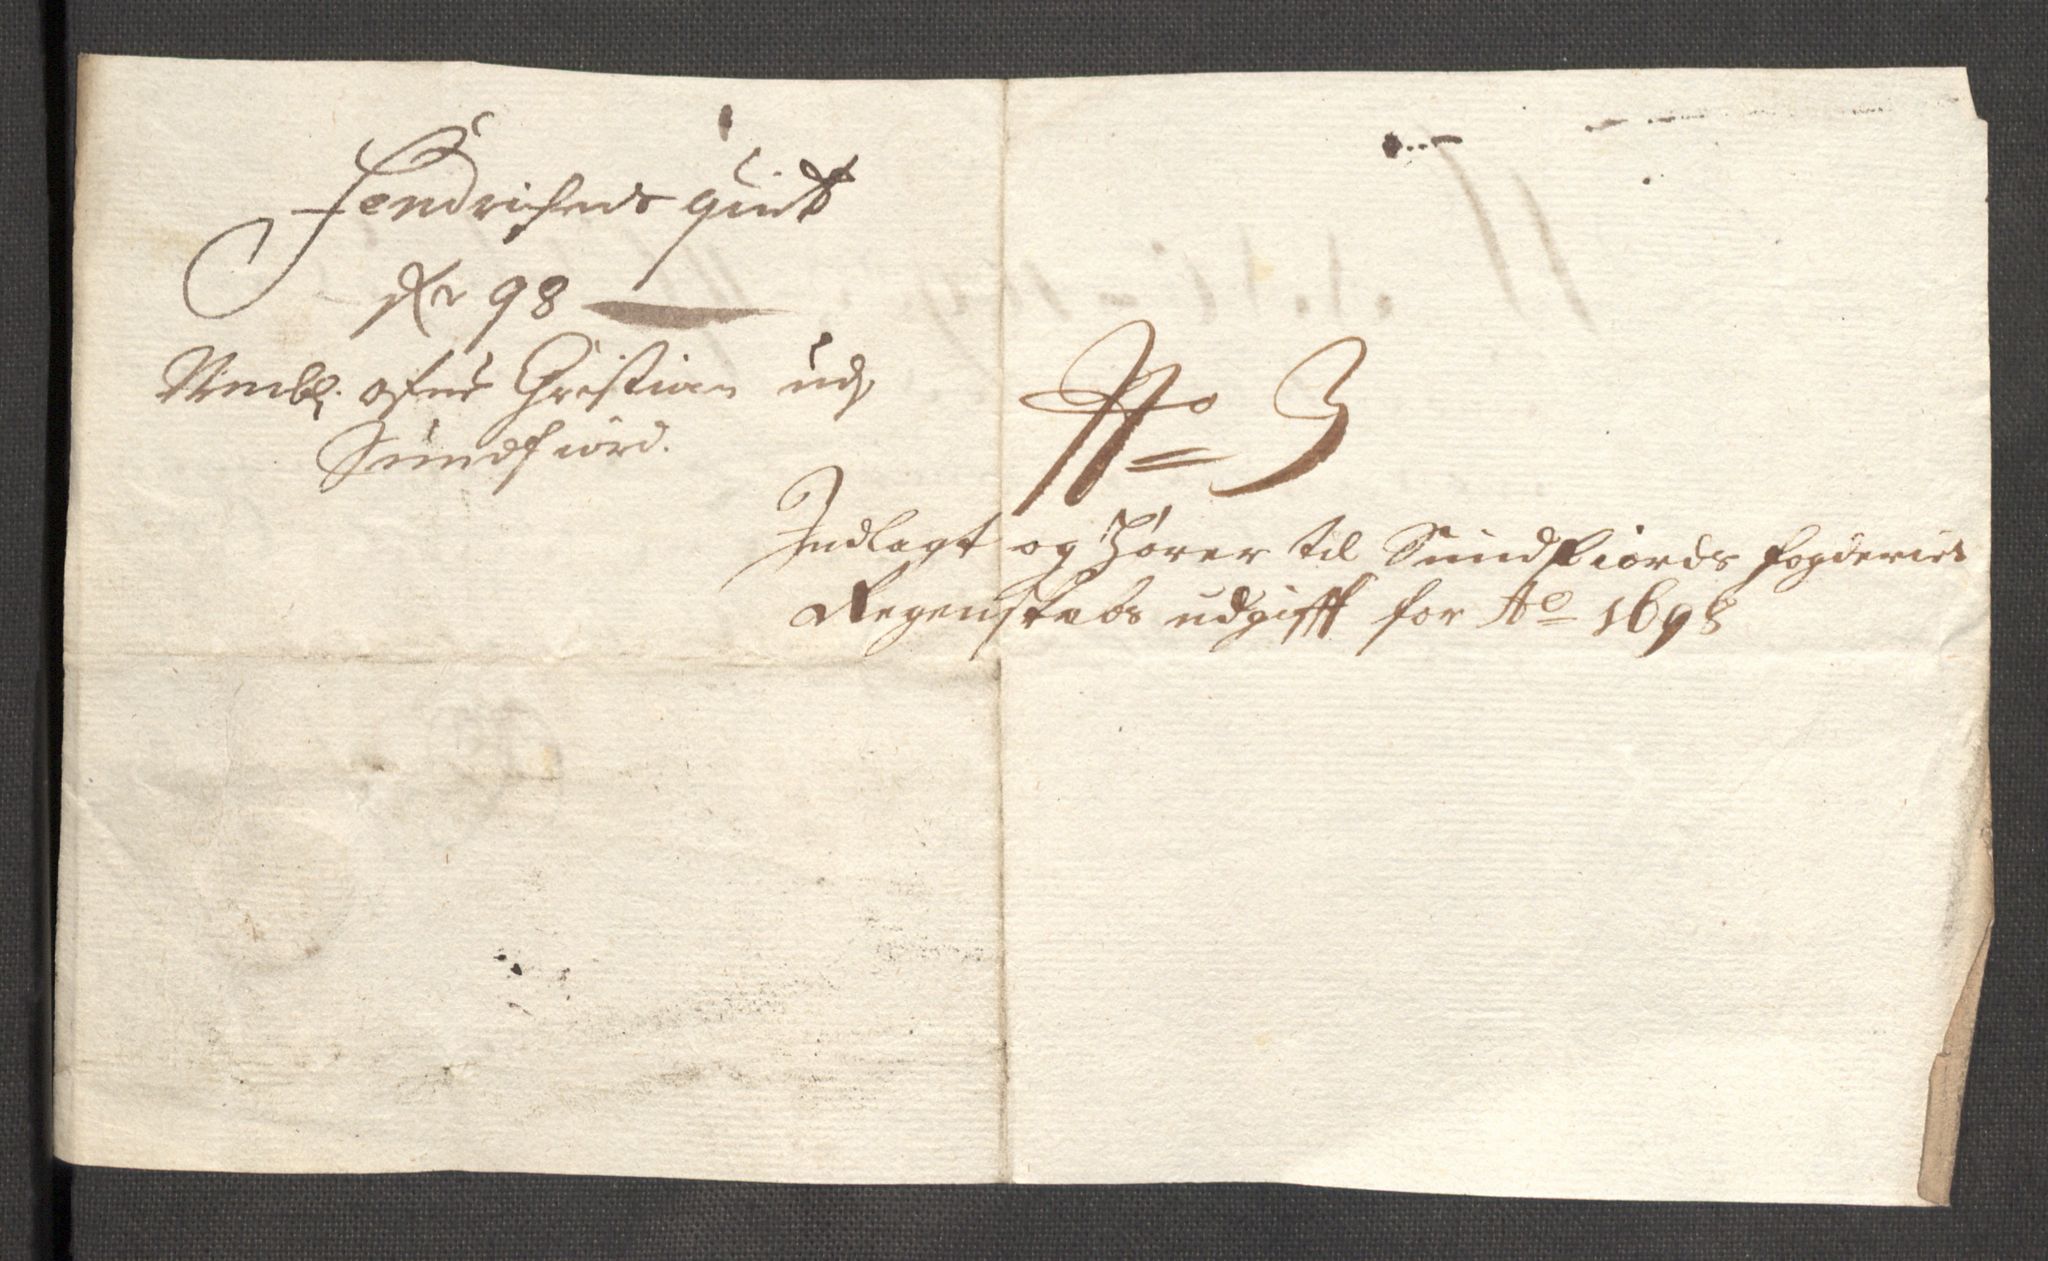 Fendrichens quit
Ao 98
Wembl: ofver Christian udj
Sundfiord.
No 3
Indlagt og hører til Sundfiords fogderies
Regenskabs udgifft for Ao 1698